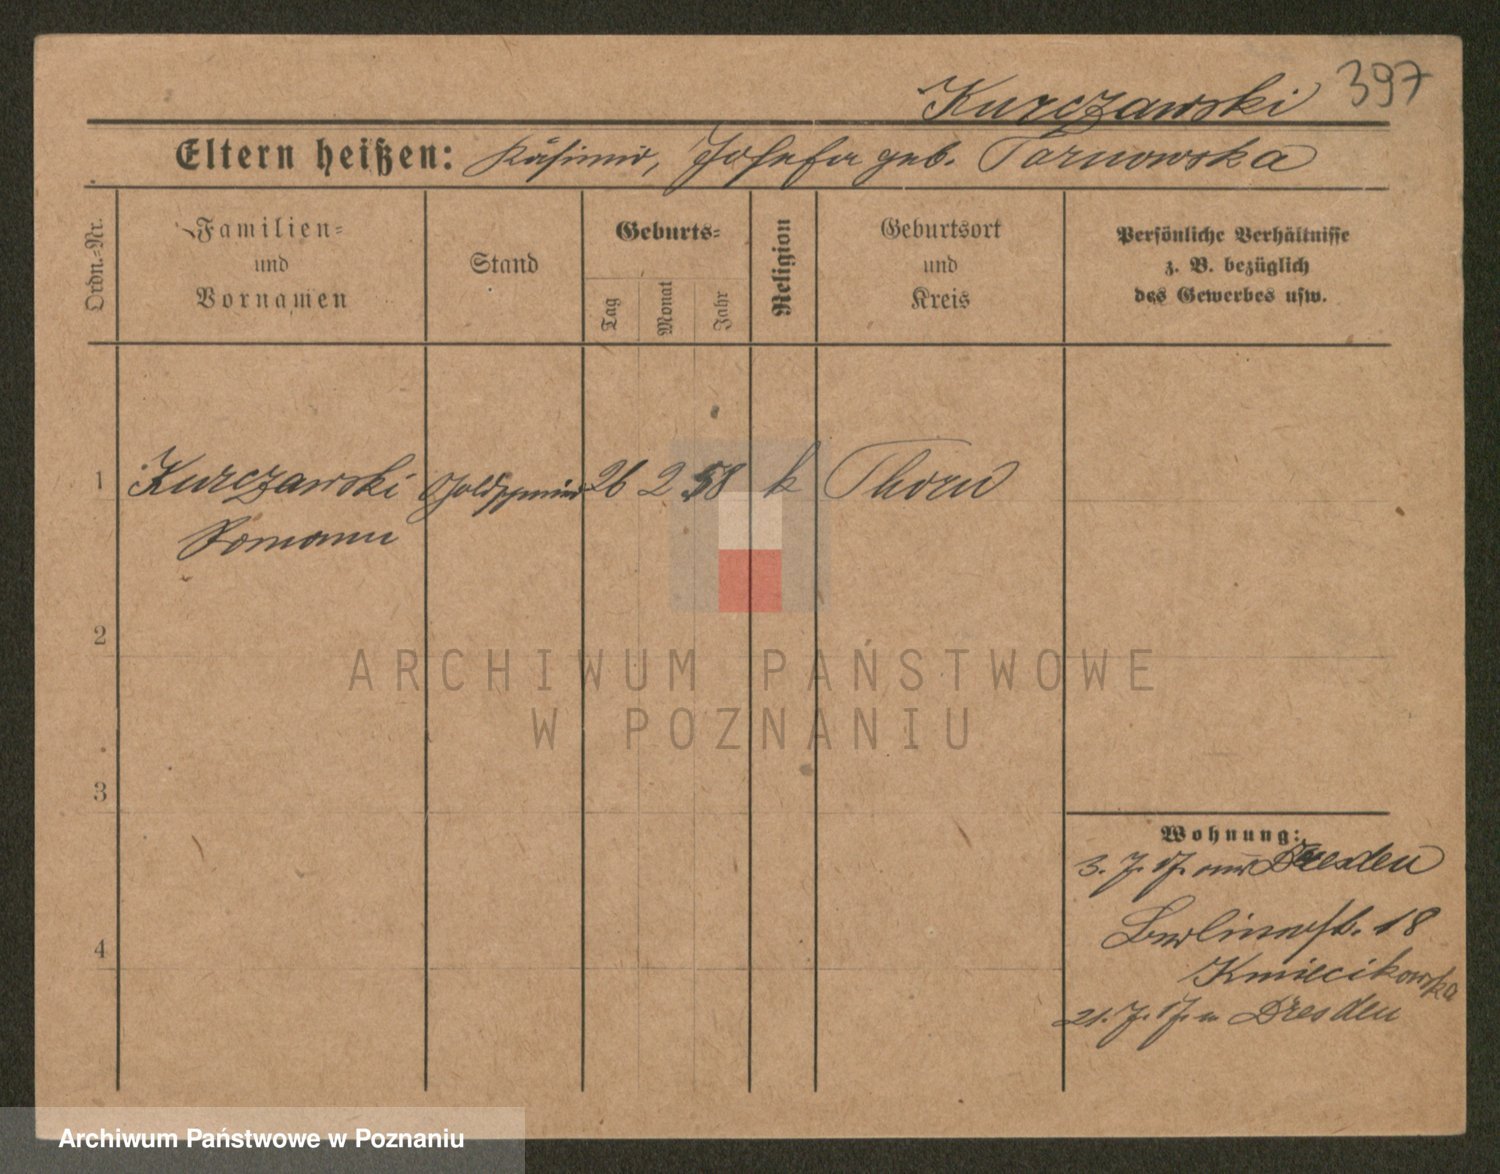 397
Kurczawski
Eltern heißen: Kasimir, Josefa geb. Tarnowska
Ordn.-Nr.
Familien-
und
Vornamen
Stand
Geburts-
Tag
Monat
Jahr
Religion
Geburtsort
und
Kreis
Persönliche Verhältnisse
z. B. bezüglich
des Gewerbes usw.
1 Kurczawski 26 2 58 k Thorn
Romann
2
ARCHIWUM PAŃSTWOWE
W POZNANIU
3
Wohnung:
3. 7. 17. Dresden
Berlinerstr. 18
Kmiecikowska
21. 7. 17. n Dresden
4
Archiwum Państwowe w Poznaniu